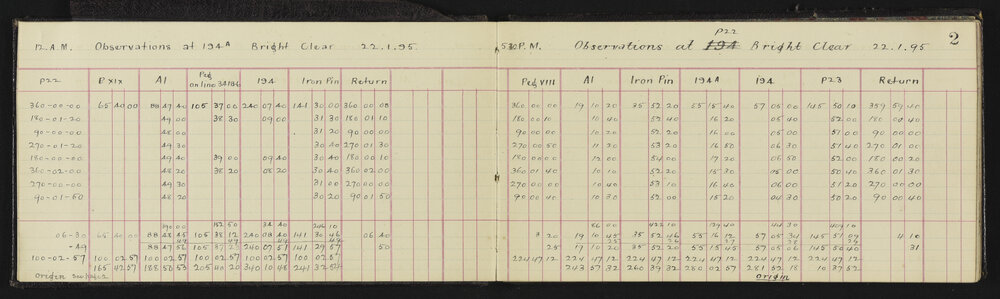 12 A.M. Observations at 194A Bright Clear 22.1.95
P22 P XIX A1 Peg on line 3A1B6 194 Iron Pin Return
360-00-00 65 40 00 88 49 40 105 37 00 240 07 40 141 30 00 360 00 00
180-01-20 49 00 38 30 09 00 31 30 180 01 10
90-00-00 48 00 31 20 90 00 00
270-01-20 49 30 30 40 270 01 30
180-00-00 49 40 39 00 09 40 30 40 180 00 10
360-02-00 48 20 38 20 08 20 30 40 360 02 00
270-00-00 49 30 31 00 270 00 00
90-01-50 48 20 30 20 90 01 50
190 00 152 50 34 40 246 10
06-30 65 40 00 88 48 45 105 38 12 240 08 40 141 30 46 06 40
49 49 49 49
-49 88 47 56 105 37 23 240 07 51 141 29 57 50
100-02-57 100 02 57 100 02 57 100 02 57 100 02 57 100 02 57
165 42 57 188 50 53 205 40 20 340 10 48 241 32 54
origin
P22
5.30 P.M. Observations at 194 Bright Clear 22.1.95 2
Peg VIII A1 Iron Pin 194A 194 P23 Return
360 00 00 19 10 20 35 52 20 55 15 40 57 05 00 145 50 10 359 59 40
180 00 10 10 40 52 40 16 20 05 40 52 00 180 00 40
90 00 00 10 20 52 20 16 00 05 00 51 00 90 00 00
270 00 50 11 20 53 20 16 50 06 30 51 40 270 01 00
180 00 00 12 00 54 00 17 20 06 50 52 00 180 00 20
360 01 40 10 10 52 20 15 30 05 00 50 40 360 01 30
270 00 00 10 40 53 10 16 40 06 00 51 20 270 00 00
90 00 40 10 30 52 00 15 20 04 30 50 20 90 01 00
86 00 422 10 129 40 44 30 409 10
3 20 19 10 45 35 52 46 55 16 12 57 05 34 145 51 09 4 10
25 26 27 28 29
25 19 10 20 35 52 20 55 15 45 57 05 06 145 50 40 31
224 47 12 224 47 12 224 47 12 224 47 12 224 47 12 224 47 12
243 57 32 260 39 32 280 02 57 281 52 18 10 37 52
origin